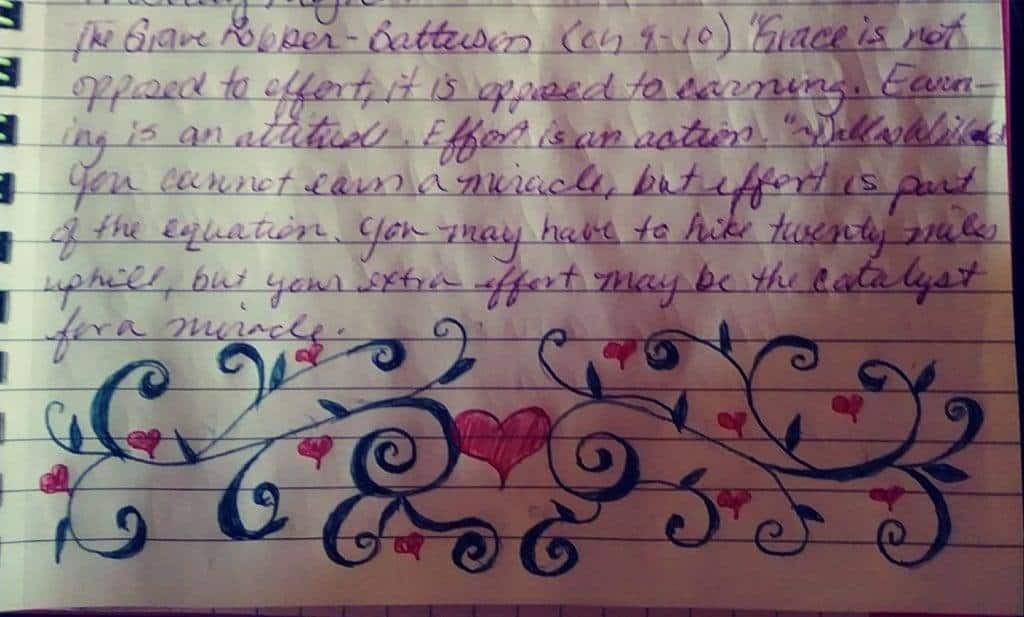 The Grave Robber - Batterson (ch 9-10) "Grace is not
opposed to effort, it is opposed to earning. Earn-
ing is an attitude. Effort is an action."
You cannot earn a miracle, but effort is part
of the equation. You may have to hike twenty miles
uphill, but your extra effort may be the catalyst
for a miracle.